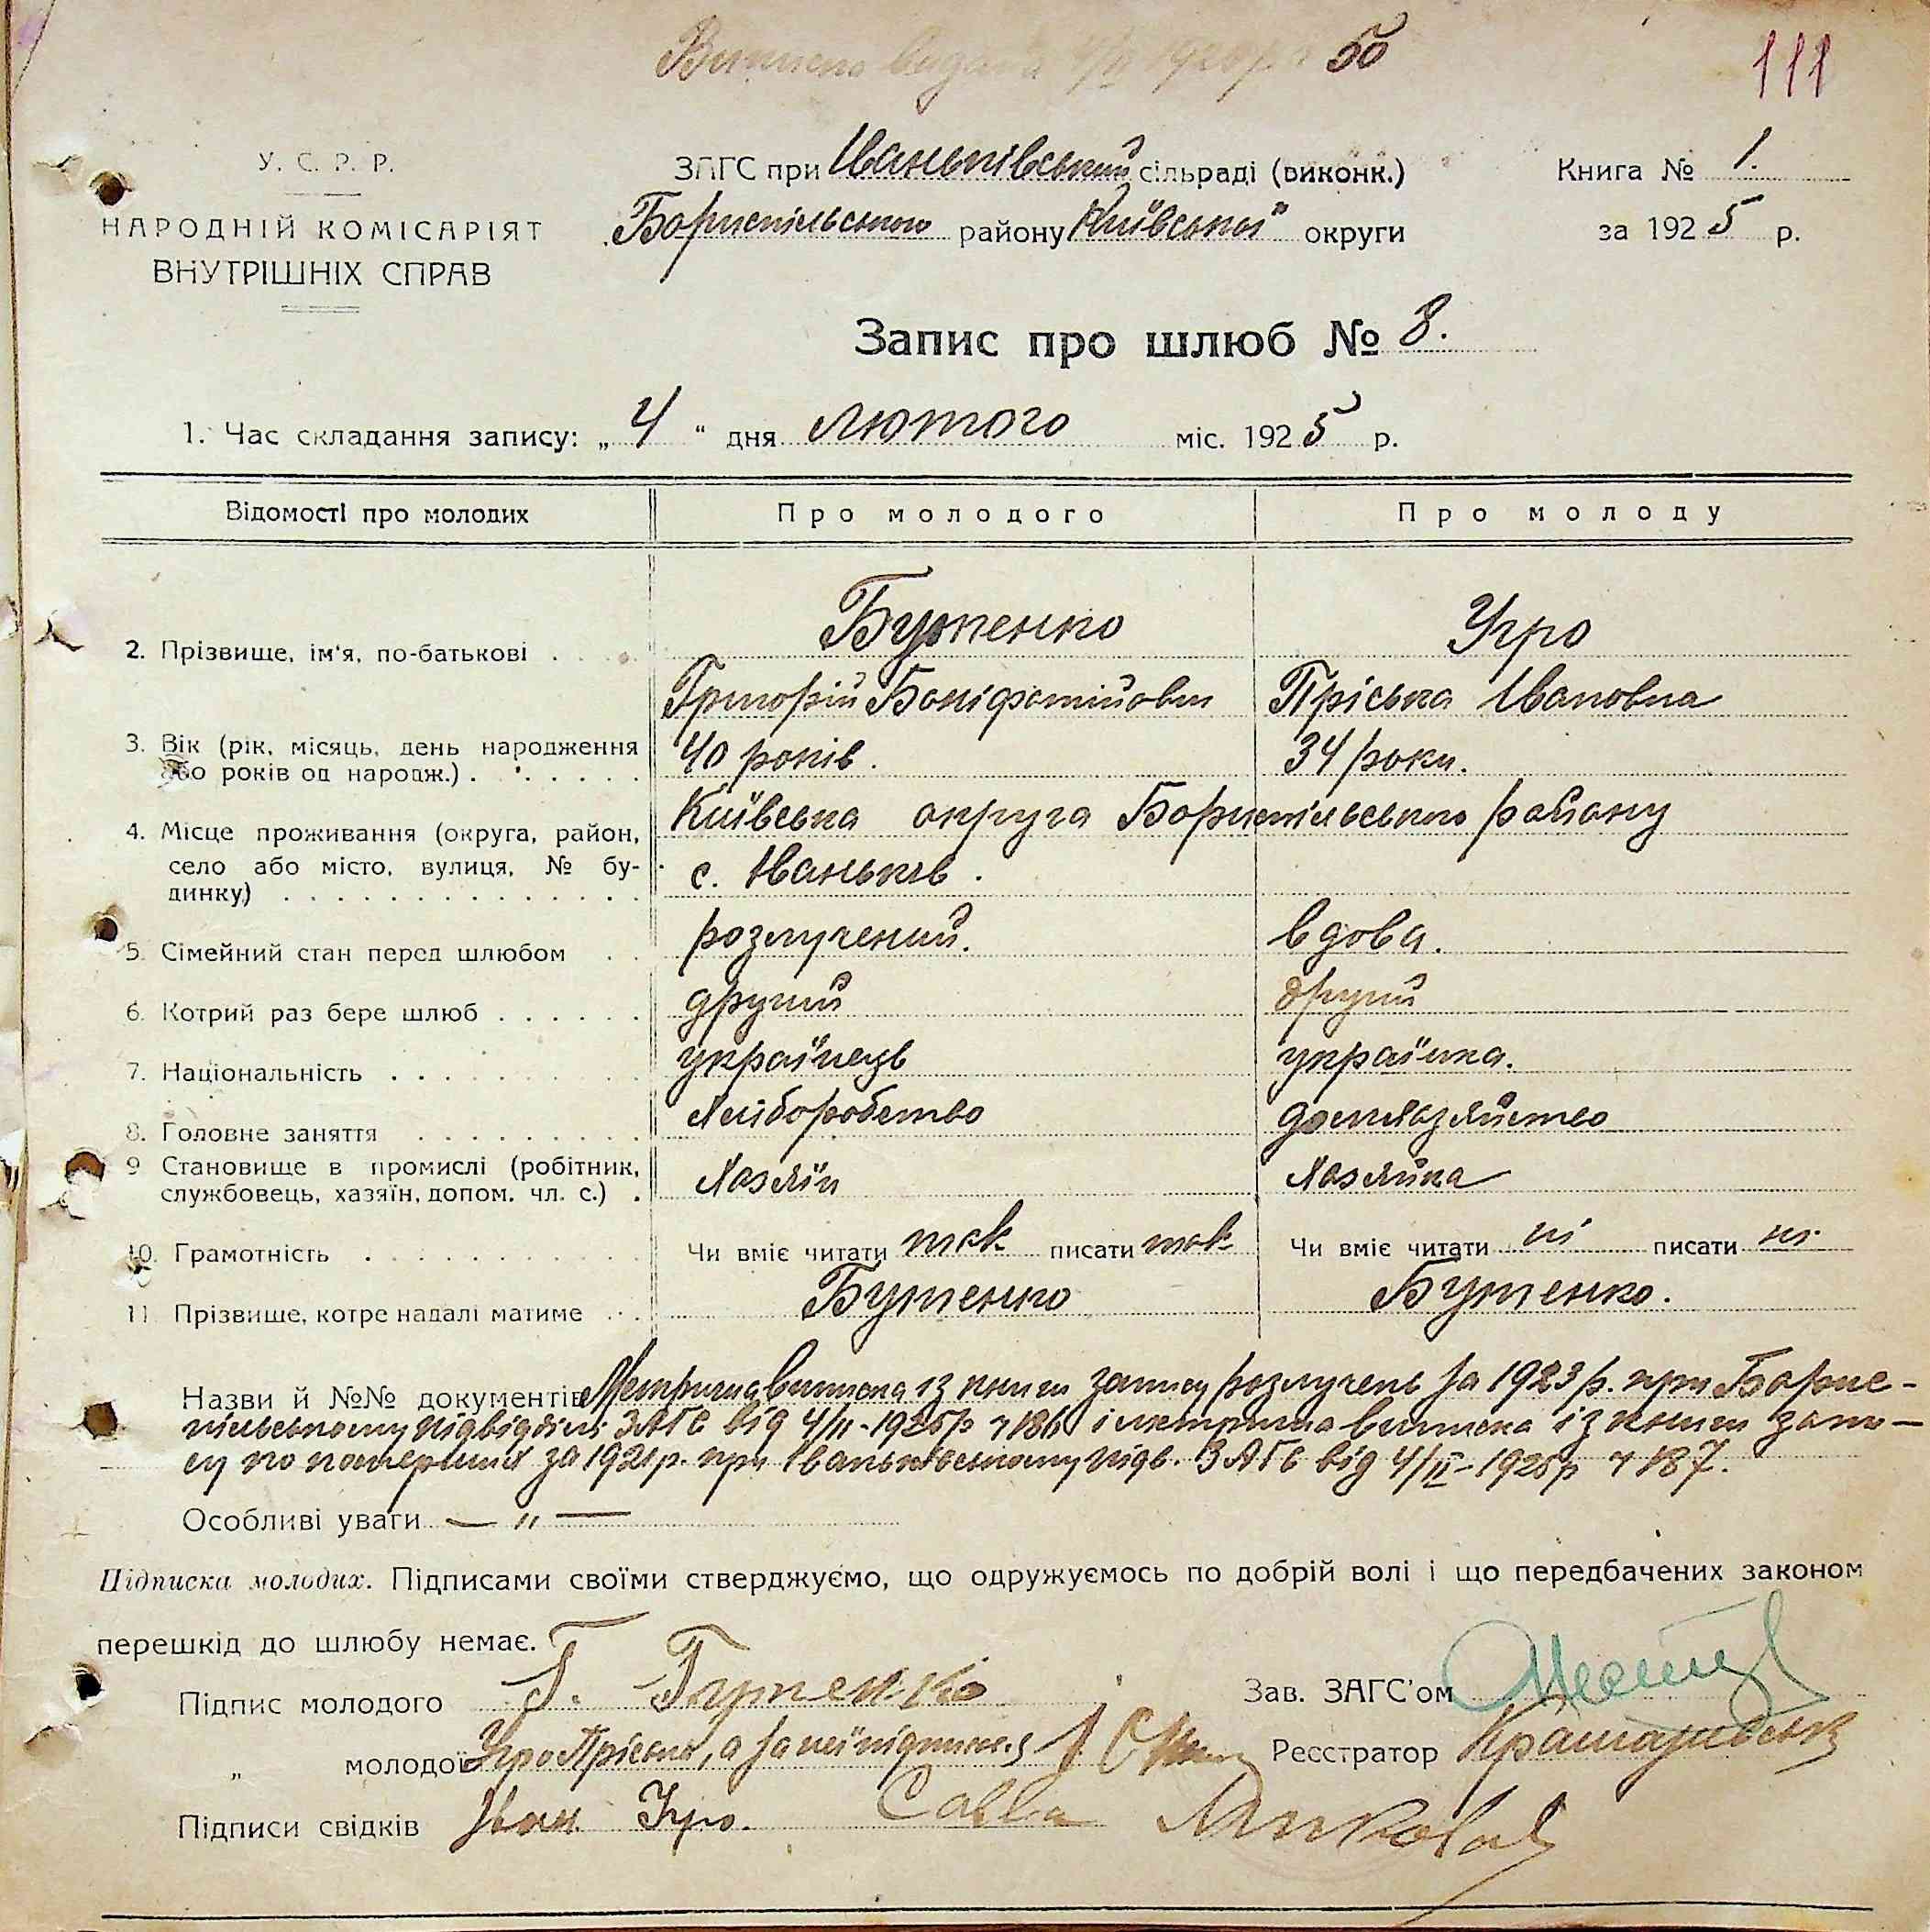 50
111
У. С. Р. Р.
ЗАГС при Іваньківський сільраді (виконк.)
Книга № 1.
НАРОДНІЙ КОМІСАРІЯТ
ВНУТРІШНІХ СПРАВ
Бориспільського району Київської округи
за 1925 р.
Запис про шлюб № 8.
1. Час складання запису: „ 4 “ дня лютого міс. 1925 р.
Відомості про молодих
Про молодого
Про молоду
2. Прізвище, ім'я, по-батькові
Бутенко
Угро
Григорій Боніфатійович
Пріська Івановна
3. Вік (рік, місяць, день народження
або років од народж.)
40 років.
34 роки.
4. Місце проживання (округа, район,
село або місто, вулиця, № бу-
динку)
Київська округа Бориспільського району
с. Іваньків.
5. Сімейний стан перед шлюбом
розлучений.
вдова.
6. Котрий раз бере шлюб
другий
другий
7. Національність
українець
українка.
8. Головне заняття
Хліборобство
домхазяйство
9 Становище в промислі (робітник,
службовець, хазяїн, допом. чл. с.)
Хазяїн
Хазяйка
10. Грамотність
Чи вміє читати так писати так
Чи вміє читати ні писати ні.
11 Прізвище, котре надалі матиме
Бутенко
Бутенко.
Назви й №№ документів Метрична виписка із книги запису розлучень за 1923 р. при Борис-
пільському підвідділі ЗАГС від 4/II-1925р ч 186 і метрична виписка із книги запи-
су по померших за 1921р. при Іваньківському підв. ЗАГС від 4/II-1925р ч 187.
Особливі уваги — " —
Підписка молодих. Підписами своїми стверджуємо, що одружуємось по добрій волі і що передбачених законом
перешкід до шлюбу немає.
Підпис молодого Г. Бутенко
Зав. ЗАГС'ом
„ молодої Угро Пріська, а за неї підписався
Реєстратор
Підписи свідків Іван Угро. Савва